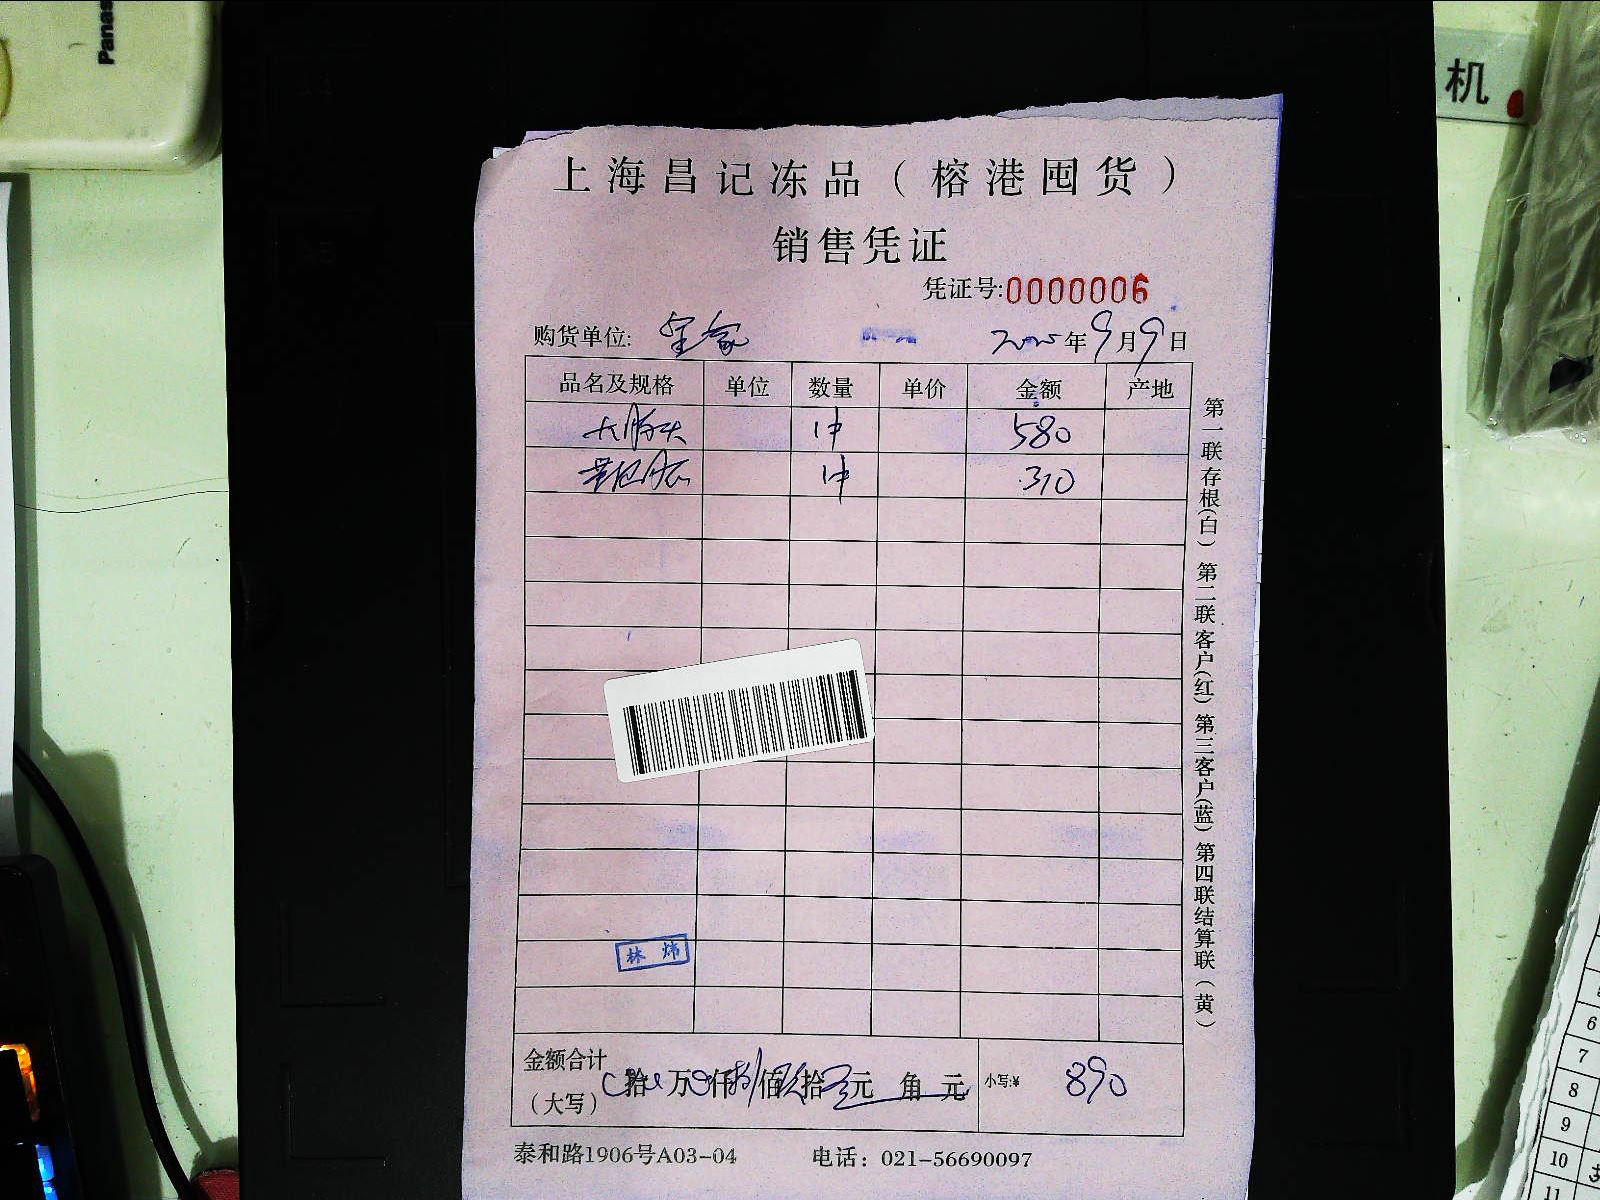 Panas
机
上海昌记冻品（榕港囤货）
销售凭证
凭证号:0000006
购货单位: 2025年9月9日
品名及规格 单位 数量 单价 金额 产地
大肠头 1件 580
1件 310
林 炜
金额合计（大写） 拾 万 仟 捌佰 玖拾 元 角 元 小写:¥ 890
泰和路1906号A03-04 电话：021-56690097
第一联存根（白）第二联客户（红）第三客户（蓝）第四联结算联（黄）
6
7
8
9
10
11